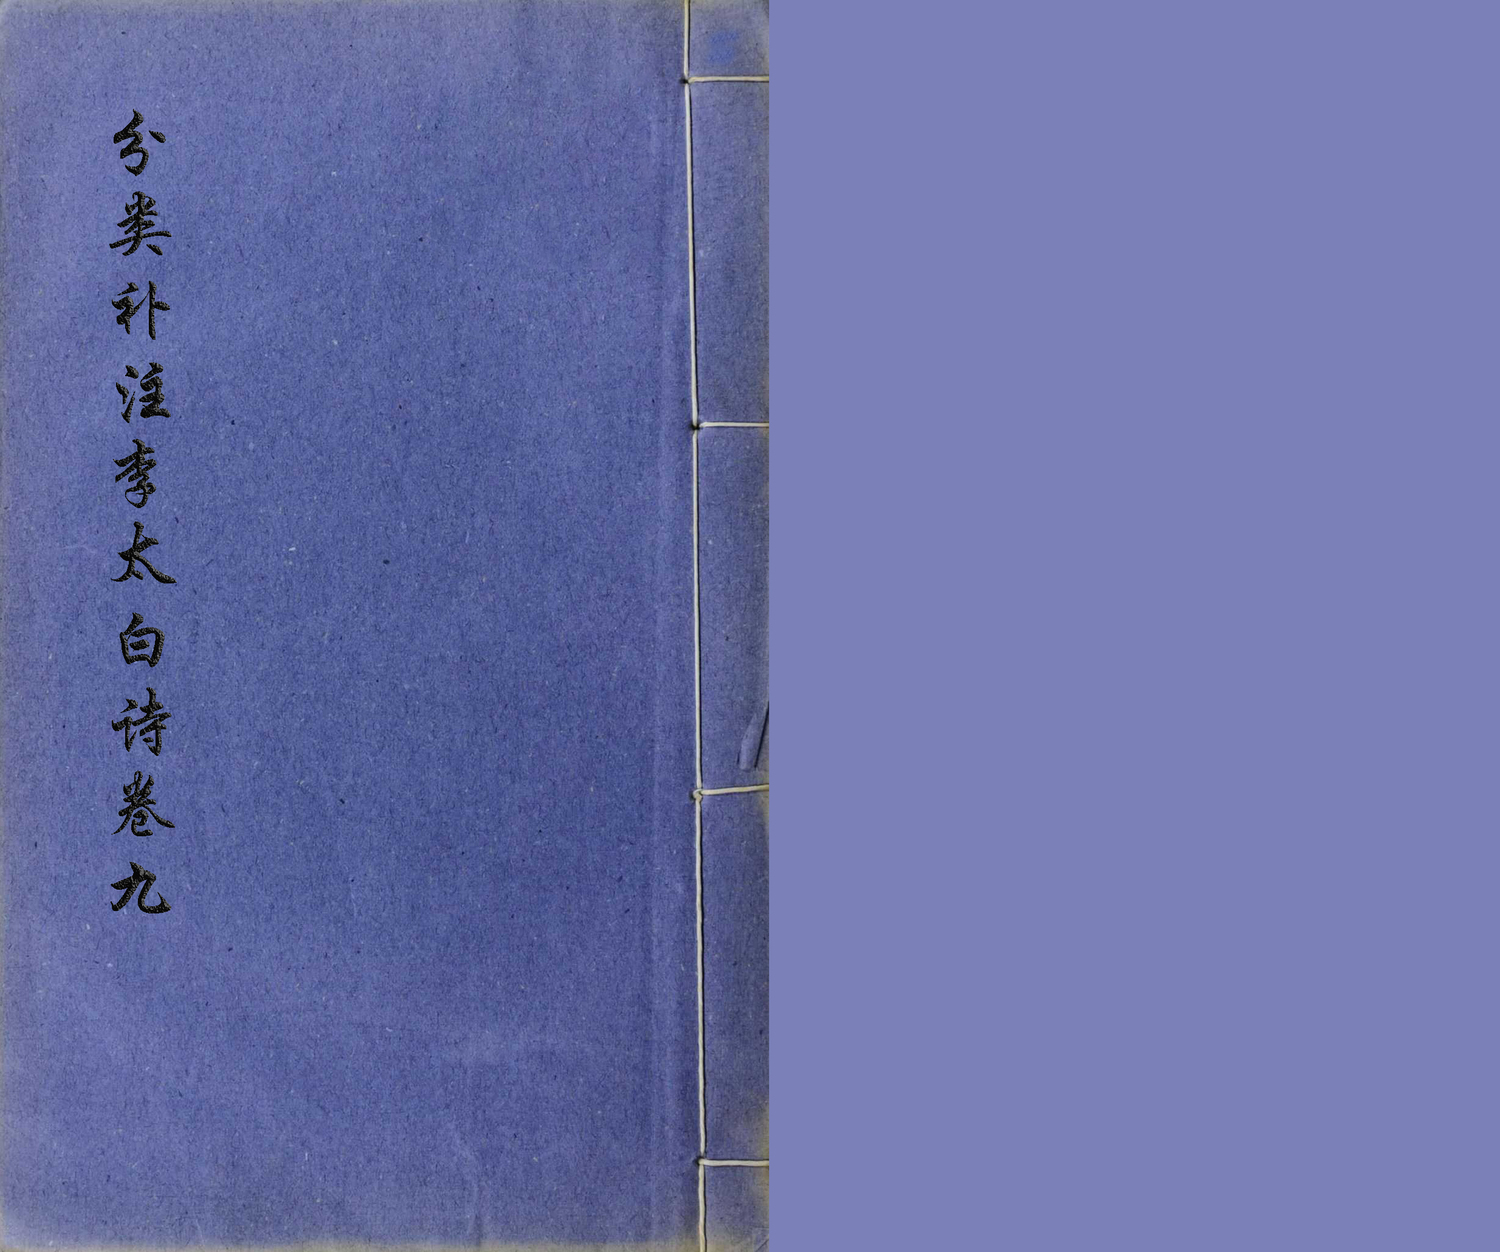 分类补注李太白诗卷九